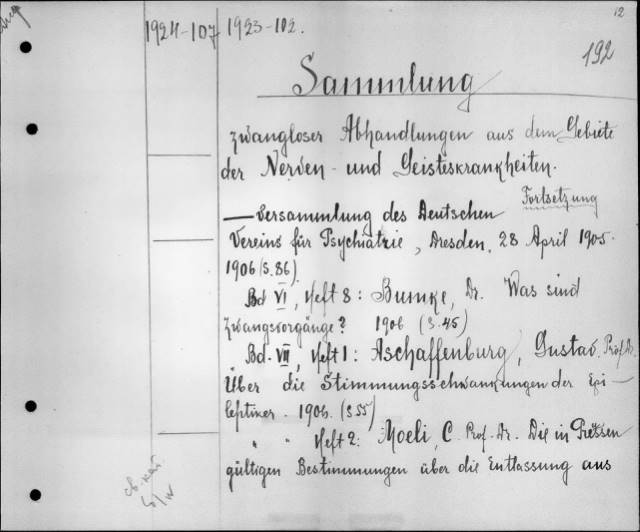 12
1924-107 1923-102.
192
Sammlung
zwangloser Abhandlungen aus dem Gebiete
der Nerven- und Geisteskrankheiten.
Fortsetzung
— Versammlung des Deutschen
Vereins für Psychiatrie, Dresden, 28 April 1905.
1906 (S. 86).
Bd VI, Heft 8: Bumke, Dr. Was sind
Zwangsvorgänge? 1906 (S. 45)
Bd. VII, Heft 1: Aschaffenburg, Gustav. Prof. Dr.
Über die Stimmungsschwankungen der Epi-
leptiker. 1906. (S 55)
" " Heft 2: Moeli, C. Prof. Dr. Die in Preussen
gültigen Bestimmungen über die Entlassung aus